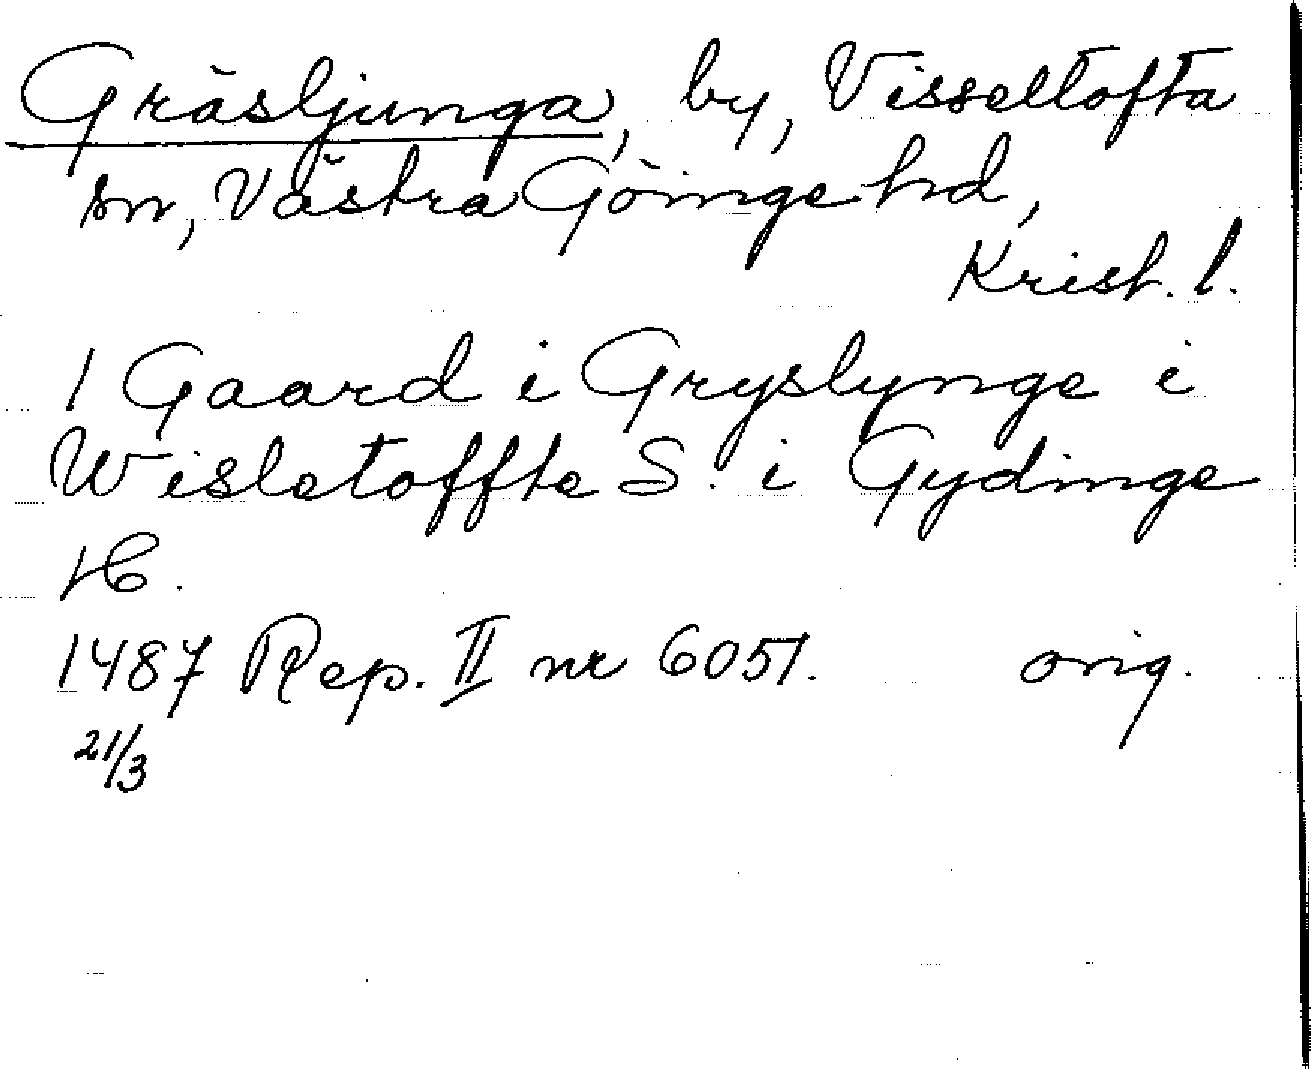 Gräsljunga, by, Visseltofta
sn, Västra Göinge hd,
Krist. l.
1 Gaard i Gryslynge i
Wisletoffte S. i Gydinge
H.
1487 Rep. II nr 6051. orig.
21/3